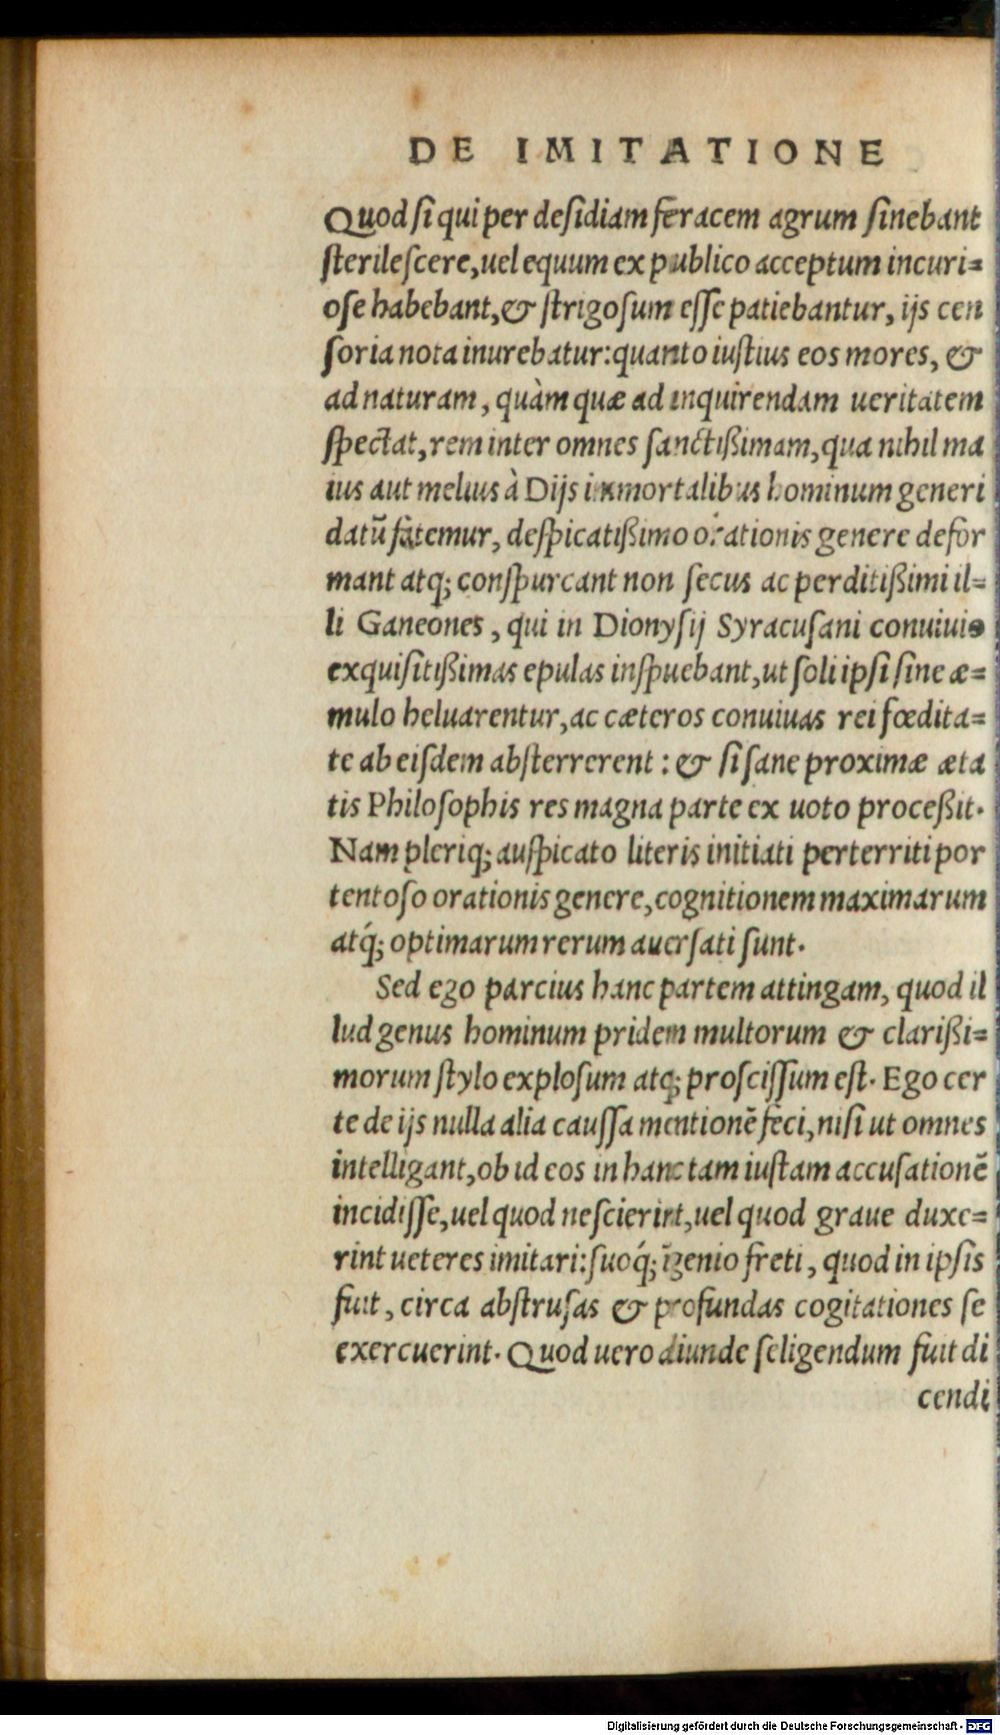 DE IMITATIONE
Quod si qui per desidiam feracem agrum sinebant
sterilescere, uel equum ex publico acceptum incuri=
ose habebant, & strigosum esse patiebantur, ijs cen
soria nota inurebatur: quanto iustius eos mores, &
ad naturam, quàm quæ ad inquirendam ueritatem
spectat, rem inter omnes sanctißimam, qua nihil ma
ius aut melius à Dijs immortalibus hominum generi
datũ fatemur, despicatißimo orationis genere defor
mant atq; conspurcant non secus ac perditißimi il=
li Ganeones, qui in Dionysij Syracusani conuiuio
exquisitißimas epulas inspuebant, ut soli ipsi sine æ=
mulo heluarentur, ac cæteros conuiuas rei fœdita=
te ab eisdem absterrerent: & si sane proximæ æta
tis Philosophis res magna parte ex uoto proceßit.
Nam pleriq; auspicato literis initiati perterriti por
tentoso orationis genere, cognitionem maximarum
atq́; optimarum rerum auersati sunt.
Sed ego parcius hanc partem attingam, quod il
lud genus hominum pridem multorum & clarißi=
morum stylo explosum atq; proscissum est. Ego cer
te de ijs nulla alia caussa mentionẽ feci, nisi ut omnes
intelligant, ob id eos in hanc tam iustam accusationẽ
incidisse, uel quod nescierint, uel quod graue duxe=
rint ueteres imitari: suoq́; ĩgenio freti, quod in ipsis
fuit, circa abstrusas & profundas cogitationes se
exercuerint. Quod uero diunde seligendum fuit di
cendi
Digitalisierung gefördert durch die Deutsche Forschungsgemeinschaft - DFG